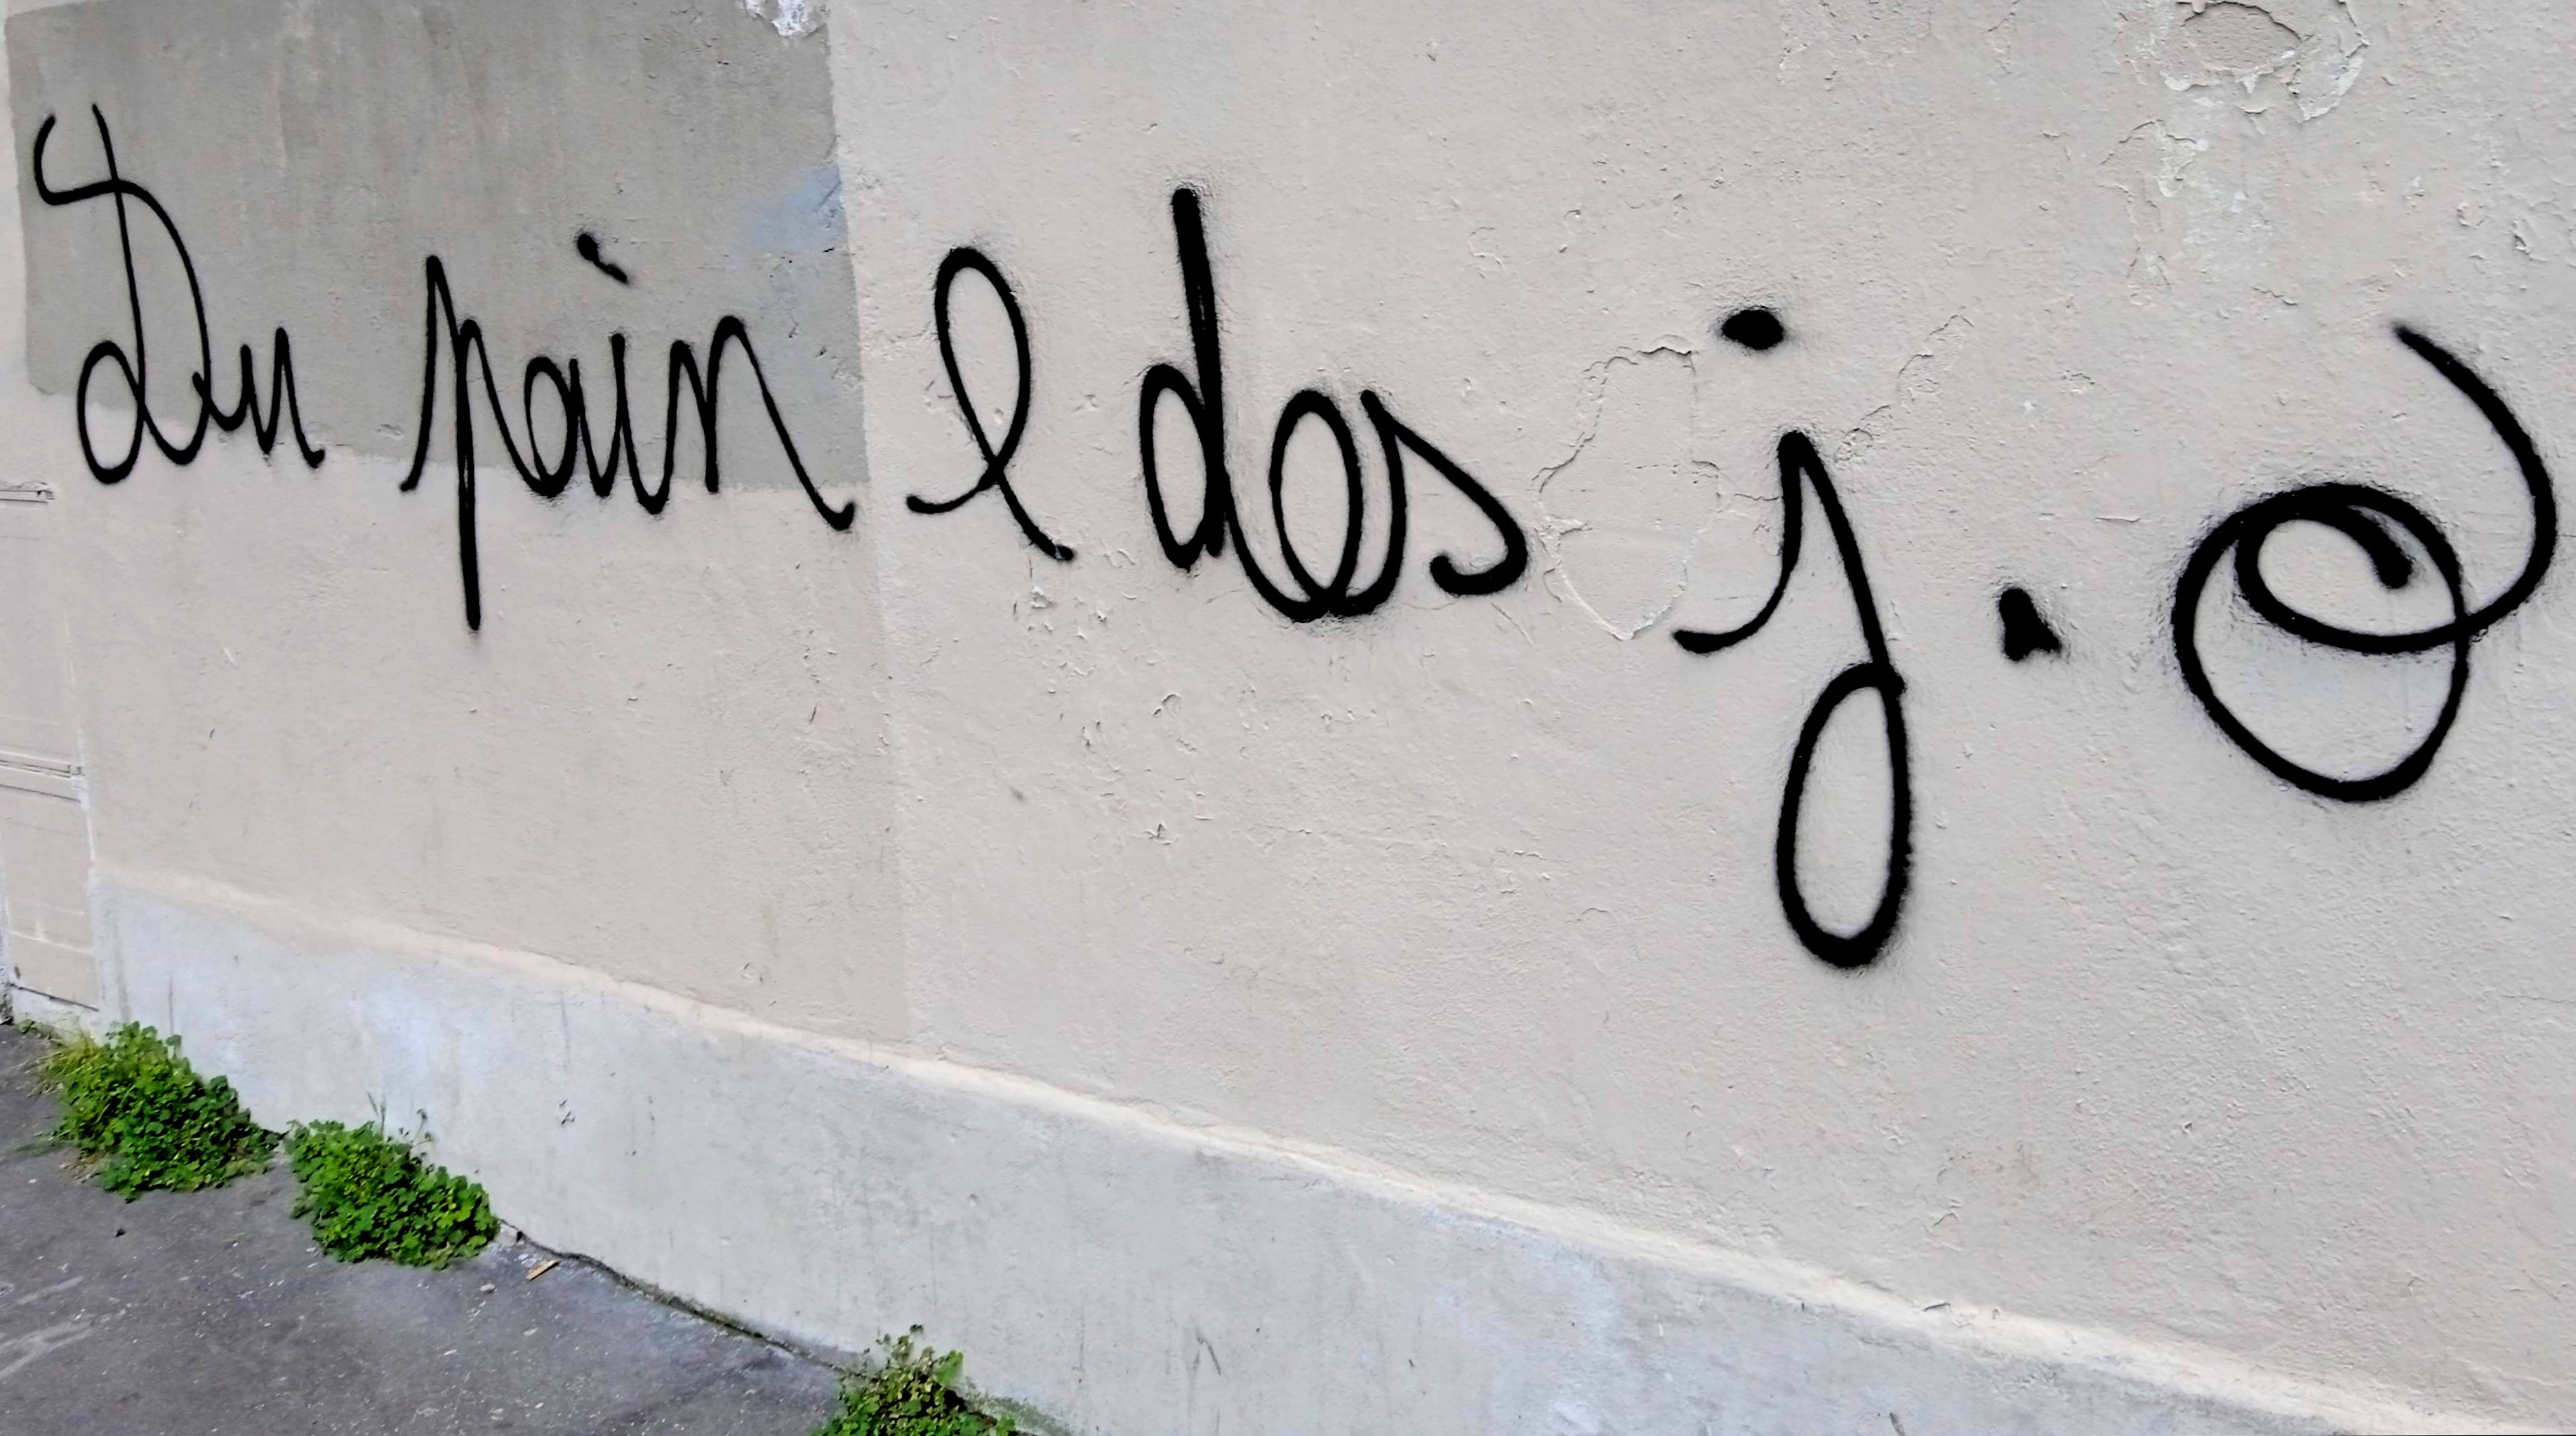 Du pain e des j.o